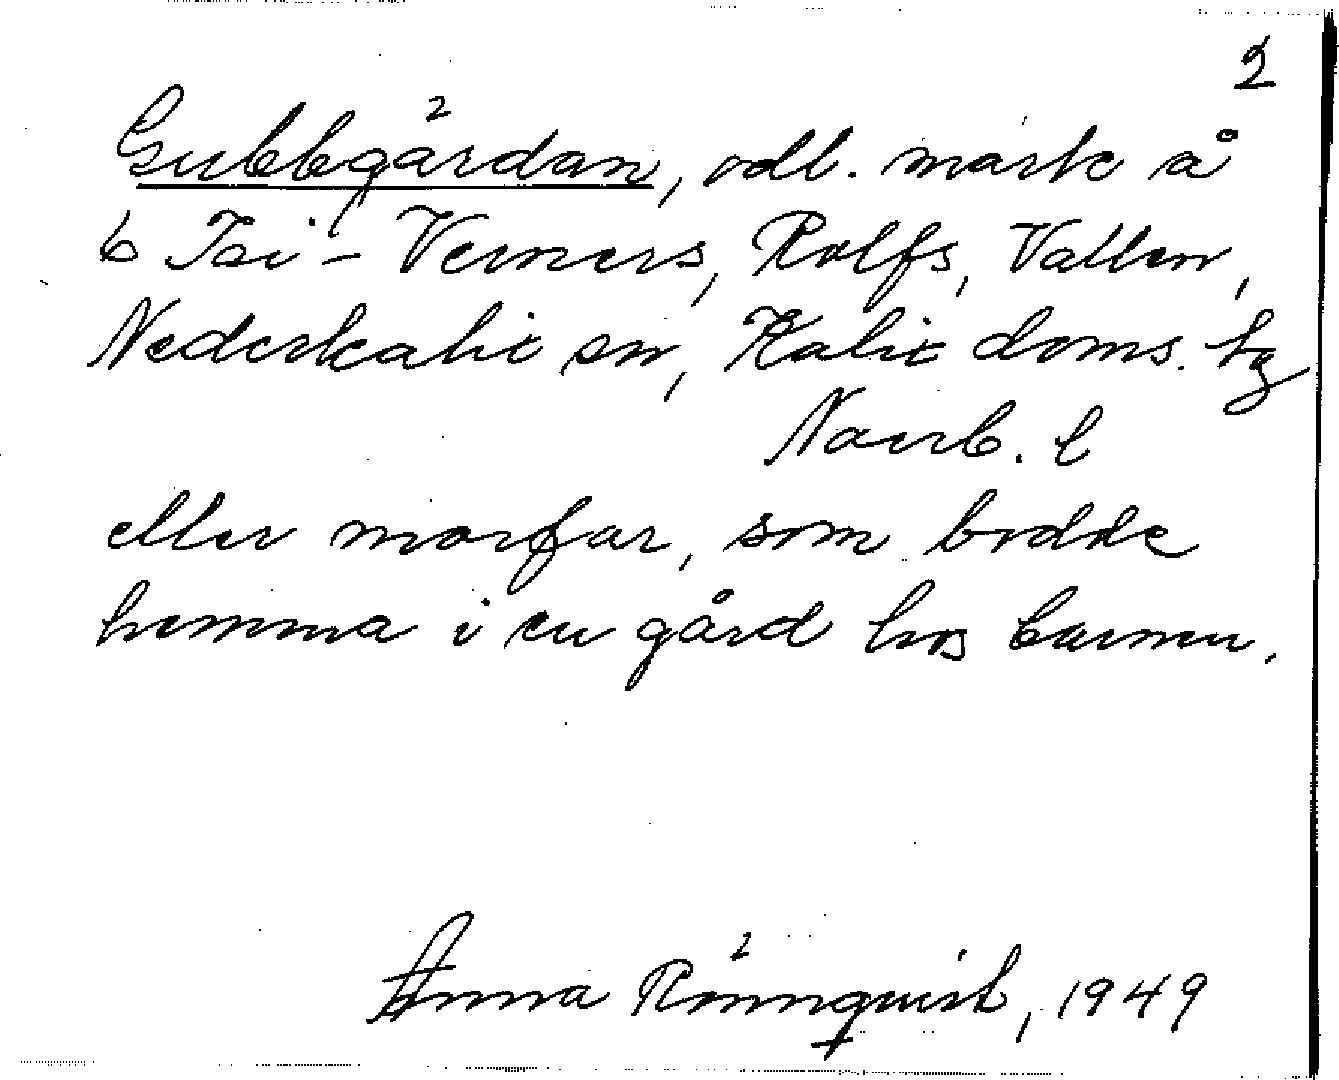 2
Gubbgårdan, odl. mark å
t Tai-Verners, Rolfs, Vallen,
Nederkalix sn, Kalix doms. tg
Norrb. l
eller morfar, som bodde
hemma i en gård hos barnen.
Anna Rönnquist, 1949